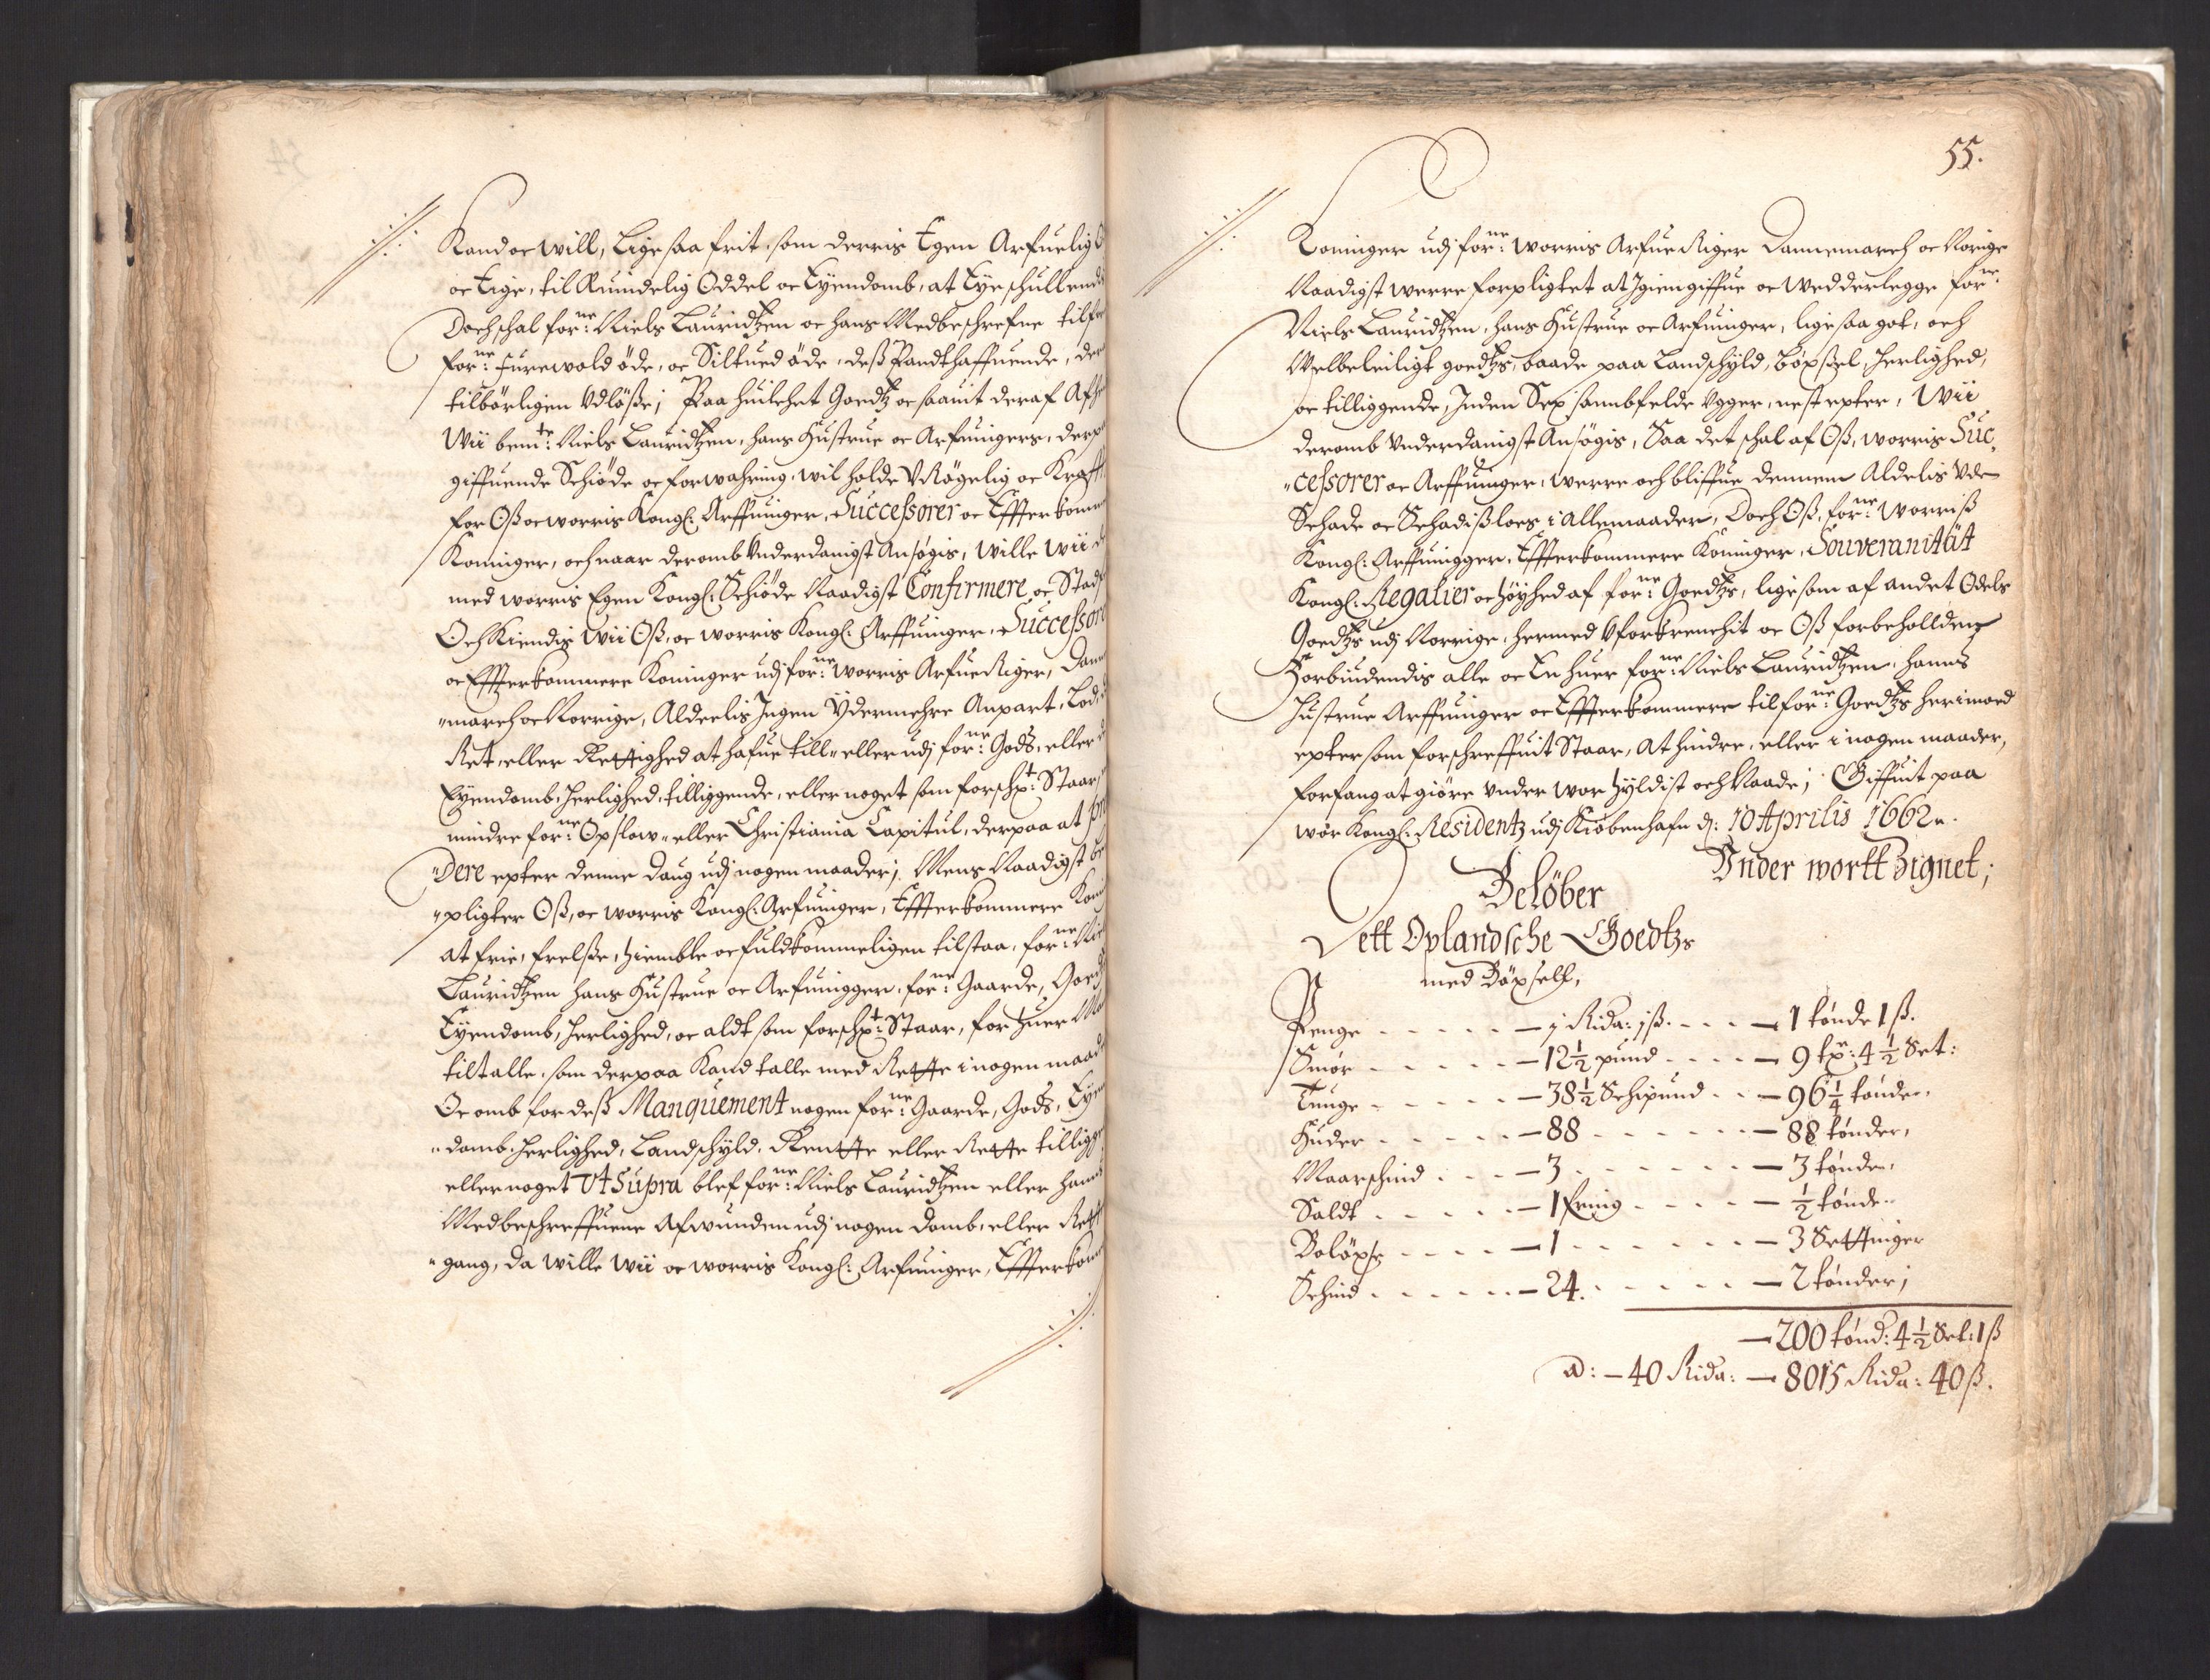 Kand oc will, Ligesaa frit som derris Egen Arfuelig
oc Eige, til Ruundelig Oddel oc Eyendomb, at Eye schullendis
Doch schal forne: Niels Lauridtzen oc hans Medbeschrefne
forne: Furewold öde, oc Siltued öde, deß Pandthaffuende,
tilbörligen Vdlöße; Paa huilchet Goedtz oc saauit deraf
Wii bemte: Niels Lauridtzen, hans Hustrue oc Arfuingers,
giffuende Schiöde oc forwahring, wil holde VRögelig oc
for Oß oc worris Kongl: Arffuinger, Successorer oc
Koninger, och naar deromb Vnderdanigst Ansögis, wille wii
med worris Egen Kongl: Schiöde Naadigst Confirmere oc
Och Kiendis Wii Oß, oc worris Kongl: Arffuinger,
oc Effterkommere Koninger udj forne: worris Arfue Riger,
"march oc Norrige, Aldeelis Ingen Ydermehre Anpart, Lod,
Ret, eller Rettighed at hafue till- eller udj forne: Gods, eller
Eyendomb, herlighed, tilliggende, eller noget som forschrt: Staar,
mindre forne: Opslow- eller Christiania Capitul, derpaa at
"dere epter denne daug udj nogen maader; Mens Naadigst
"pligter Oß, oc worris Kongl: Arfuinger, Effterkommere
at frie, frelße, hiemble oc fuldkommeligen tilstaa, forne:
Lauridtzen hans Hustrue oc Arfuingger, forne: Gaarde,
Eyendomb, herlighed, oc aldt som forschrt: Staar, for huer
tiltalle, som derpaa Kand talle med Rette i nogen
Oc omb for deß Manquement nogen forne: Gaarde, Gods,
"domb, herlighed, Landschyld, Rentte eller Rette
eller noget Vt Supra blef forne: Niels Lauridtzen eller
Medbeschreffuene Afwunden udj nogen domb, eller
"gang, da wille wii oc worris Kongl: Arfuinger,
55.
Koninger udj forne: worris Arfue Riger Dannemarch oc Norige
Naadigst werre forpligtet at Igiengiffue oc Wedderlegge forne:
Niels Lauridtzen, hans Hustrue oc Arfuinger, ligesaa got, och
Welbeleiligt goedtzs, baade paa Landschyld, böxßel, herlighed,
oc tilliggende, Inden Sex sambfelde Vgger, nest epter, Wii
deromb Vnderdanigst Ansögis, Saa det schal af Oß, worris Suc,
"cessorer oc Arffuinger, werre och bliffue dennem Aldelis Vden
Schade oc Schadißloes i Allemaader, Doch Oß, forne: worriß
Kongl: Arffuingger, Effterkommere Koninger, Souveranität
Kongl: Regalier oc höyhed af forne: Goedtzs, ligesom af andet Odels
Goedtzs udj Norrige, hermed Vforkrenchit oc Oß forbeholldene
Forbiudendis alle oc En huer forne: Niels Lauridtzen, hanns
Hustrue Arffuinger oc Effterkommere til forne: Goedtzs herimoed
epter som forschreffuit Staar, at hindre, eller i nogen maader,
forfang at giöre Vnder wor hyldist och Naade; Giffuit paa
wor Kongl: Residentz udj Kiøbenhafn d: 10 Aprilis 1662.
Vnder wortt Zignet;
Belöber
Dett Oplandsche Goedtzs
med Böxsell,
Penge - - - - - 1 Rida: 1ß. - - - 1 tønde 1 ß.
Smör - - - - - 12½ pund - - - - 9 tr: 4½ Set:
Tunge - - - - - 38½ Schipund - - 96¼ tønder.
Huder - - - - - 88 - - - - - - 88 tønder,
Maarschind - - - 3 - - - - - - 3 tønder.
Saldt - - - - - 1 Fring - - - - ½ tønde.
Boløxe - - - - 1 - - - - - - 3 Settinger
Schind - - - - - 24. - - - - - 2 tønder;
200 tønd: 4½ Set: 1ß
a: - 40 Rida: - 8015 Rida: 40ß.